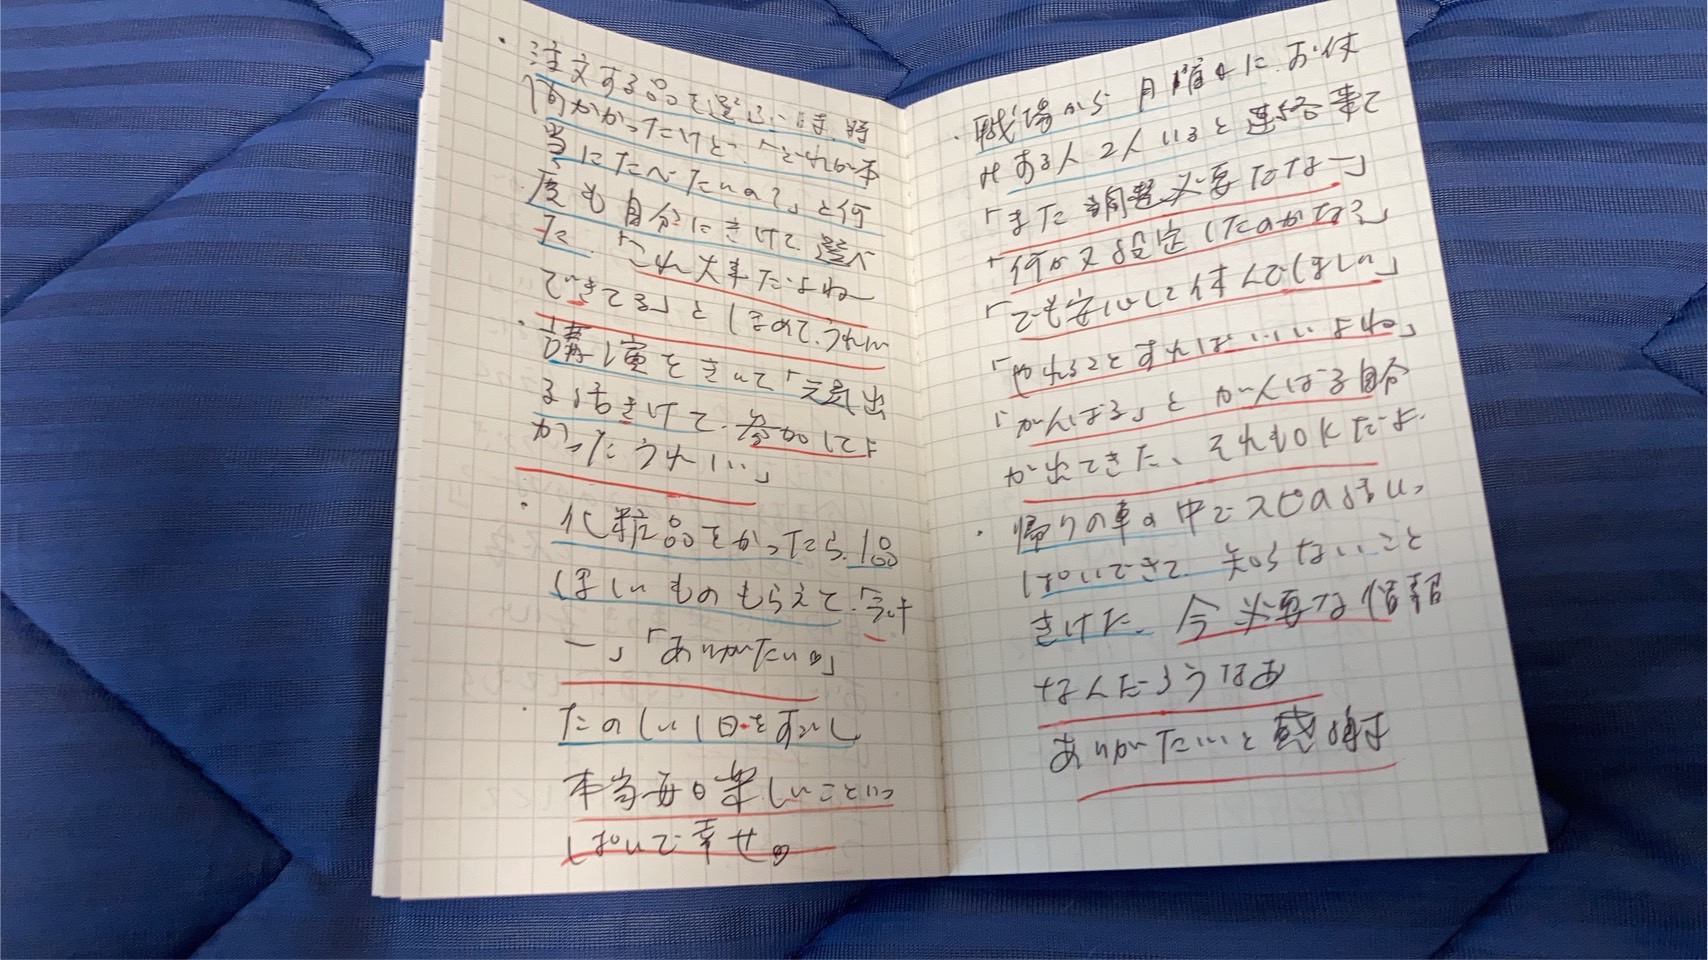 ・注文する品を選ぶ時、時
間かかったけど、「それ本
当にたべたいの？」と何
度も自分にきけて選べ
た。「これ大事だよね
できてる」としまめて、うれしい
・講演をきいて「元気出
る話きけて、参加してよ
かったうれしい」
・化粧品をかったら、1品
ほしいものもらえて、「ラッキ
ー」「ありがたいの」
・たのしい1日をすごし
本当毎日楽しいこといっ
ぱいで幸せ。
・職場から月曜日に、お休
みある人2人いると連絡来て
「また調整必要だなー」
「何か又設定したのかな？」
「でも安心して休んでほしい」
「やれることすればいいよね」
「がんばる」とがんばる自分
が出てきた、それもOKだよ。
・帰りの車の中でスピのはなしい
ぱいできて、知らないこと
きけた、今必要な情報
なんだろうなあ
ありがたいと感謝